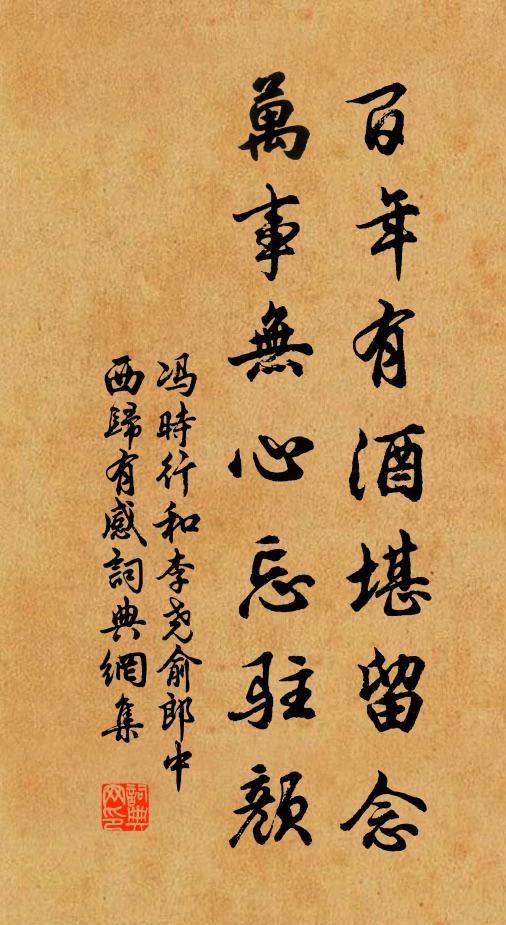 百年有酒堪留念
萬事無心忘駐顏
冯時行和李尧俞郎中
西歸有感詞典網集
詞典網印